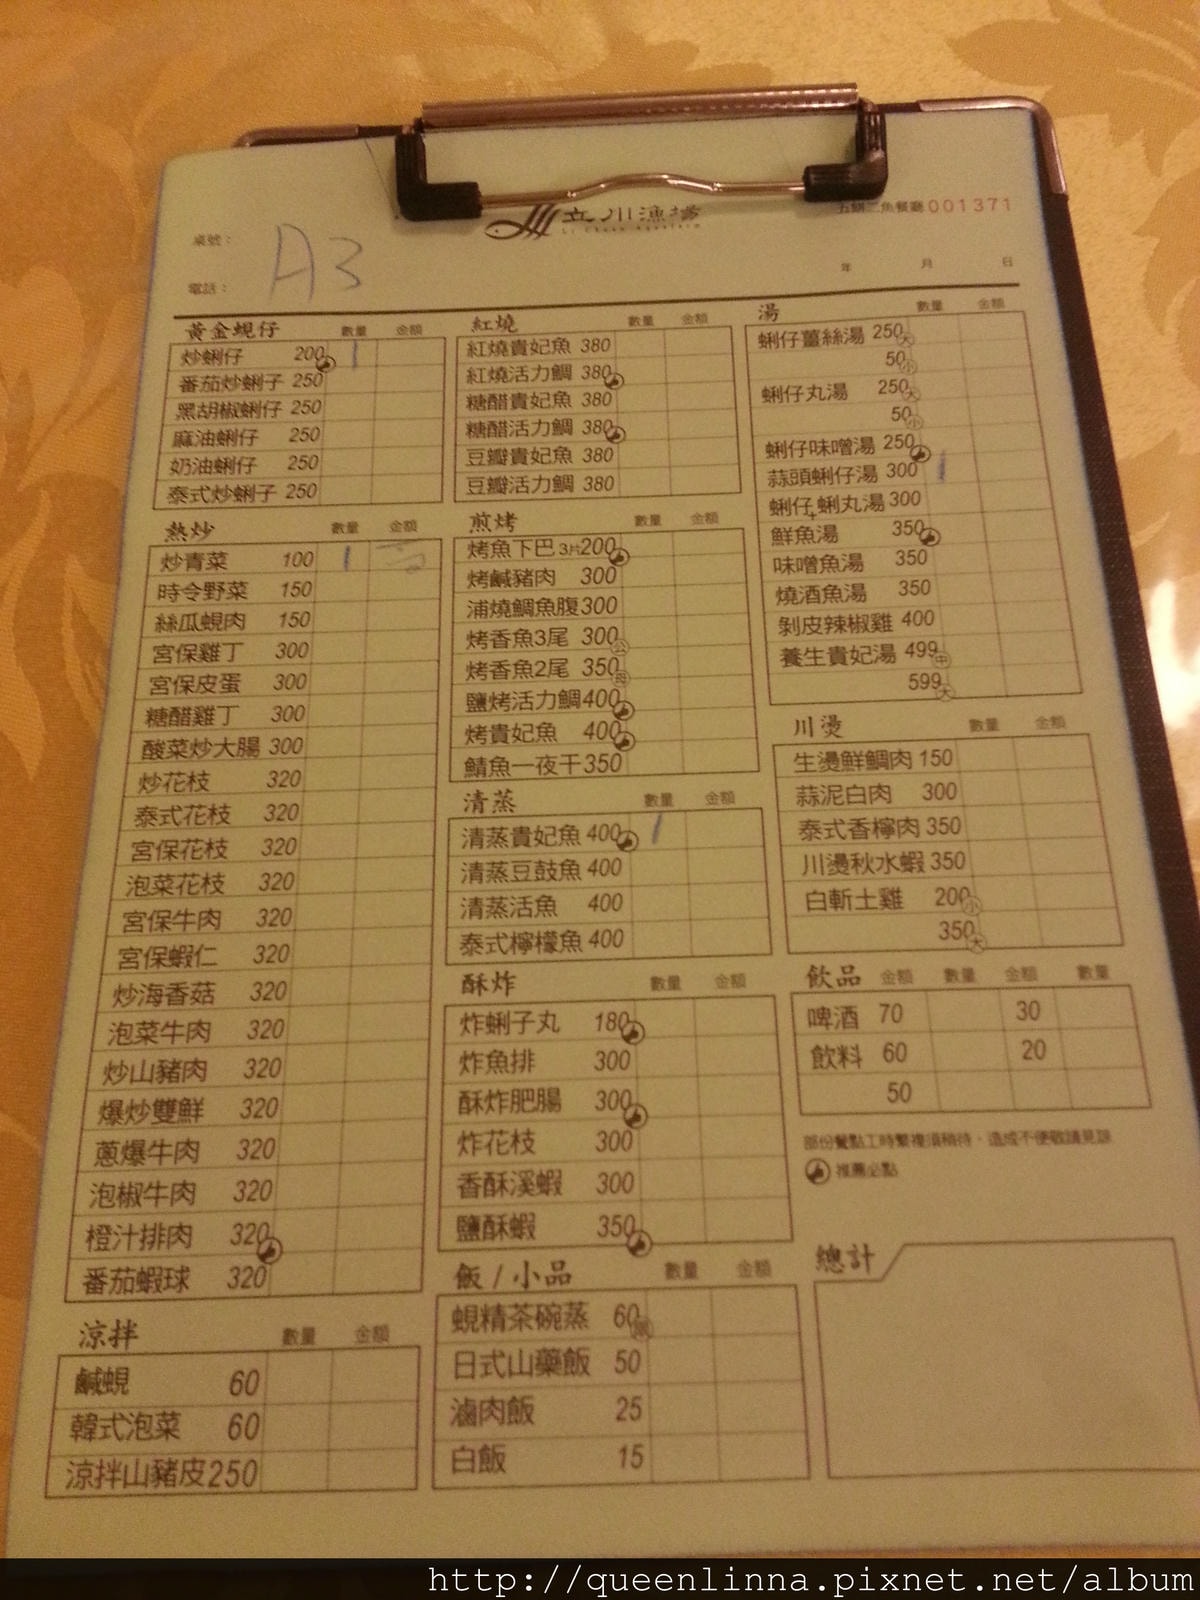 立川漁場
Li Chuan Aquafarm
五餅二魚餐廳 001371
桌號： A3
電話：
年 月 日
黃金蜆仔 數量 金額
炒蜊仔 200 1
番茄炒蜊子 250
黑胡椒蜊仔 250
麻油蜊仔 250
奶油蜊仔 250
泰式炒蜊子 250
熱炒 數量 金額
炒青菜 100 1
時令野菜 150
絲瓜蜆肉 150
宮保雞丁 300
宮保皮蛋 300
糖醋雞丁 300
酸菜炒大腸 300
炒花枝 320
泰式花枝 320
宮保花枝 320
泡菜花枝 320
宮保牛肉 320
宮保蝦仁 320
炒海香菇 320
泡菜牛肉 320
炒山豬肉 320
爆炒雙鮮 320
蔥爆牛肉 320
泡椒牛肉 320
橙汁排肉 320
番茄蝦球 320
涼拌 數量 金額
鹹蜆 60
韓式泡菜 60
涼拌山豬皮 250
紅燒 數量 金額
紅燒貴妃魚 380
紅燒活力鯛 380
糖醋貴妃魚 380
糖醋活力鯛 380
豆瓣貴妃魚 380
豆瓣活力鯛 380
煎烤 數量 金額
烤魚下巴 3片 200
烤鹹豬肉 300
浦燒鯛魚腹 300
烤香魚3尾 300 公
烤香魚2尾 350 母
鹽烤活力鯛 400
烤貴妃魚 400
鯖魚一夜干 350
清蒸 數量 金額
清蒸貴妃魚 400 1
清蒸豆鼓魚 400
清蒸活魚 400
泰式檸檬魚 400
酥炸 數量 金額
炸蜊子丸 180
炸魚排 300
酥炸肥腸 300
炸花枝 300
香酥溪蝦 300
鹽酥蝦 350
飯/小品 數量 金額
蜆精茶碗蒸 60
日式山藥飯 50
滷肉飯 25
白飯 15
湯 數量 金額
蜊仔薑絲湯 250 大
50 小
蜊仔丸湯 250 大
50 小
蜊仔味噌湯 250
蒜頭蜊仔湯 300 1
蜊仔+蜊丸湯 300
鮮魚湯 350
味噌魚湯 350
燒酒魚湯 350
剝皮辣椒雞 400
養生貴妃湯 499 中
599 大
川燙 數量 金額
生燙鮮鯛肉 150
蒜泥白肉 300
泰式香檸肉 350
川燙秋水蝦 350
白斬土雞 200 小
350 大
飲品 金額 數量 金額 數量
啤酒 70 30
飲料 60 20
50
部份餐點工時繁複須稍待，造成不便敬請見諒
推薦必點
總計
http://queenlinna.pixnet.net/album